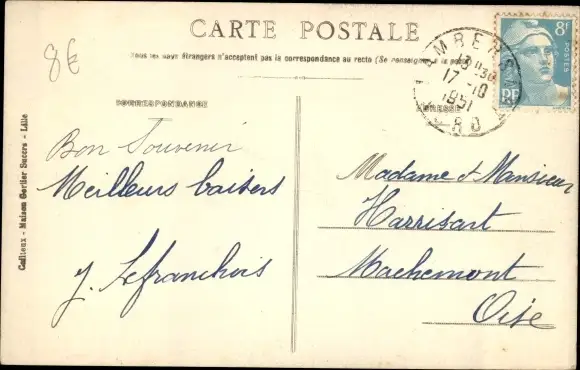 CARTE POSTALE
Tous les pays étrangers n'acceptent pas la correspondance au recto (Se renseigner à la poste)
8€
CORRESPONDANCE
ADRESSE
LAMBERSART
18 H30
17 -10
1951
RD
8F
POSTES
RF
Bon Souvenir
Meilleurs baisers
J. Lefranchois
Madame et Monsieur
Harrisart
Machemont
Oise
Cailteux - Maison Gorlier Succrs - Lille